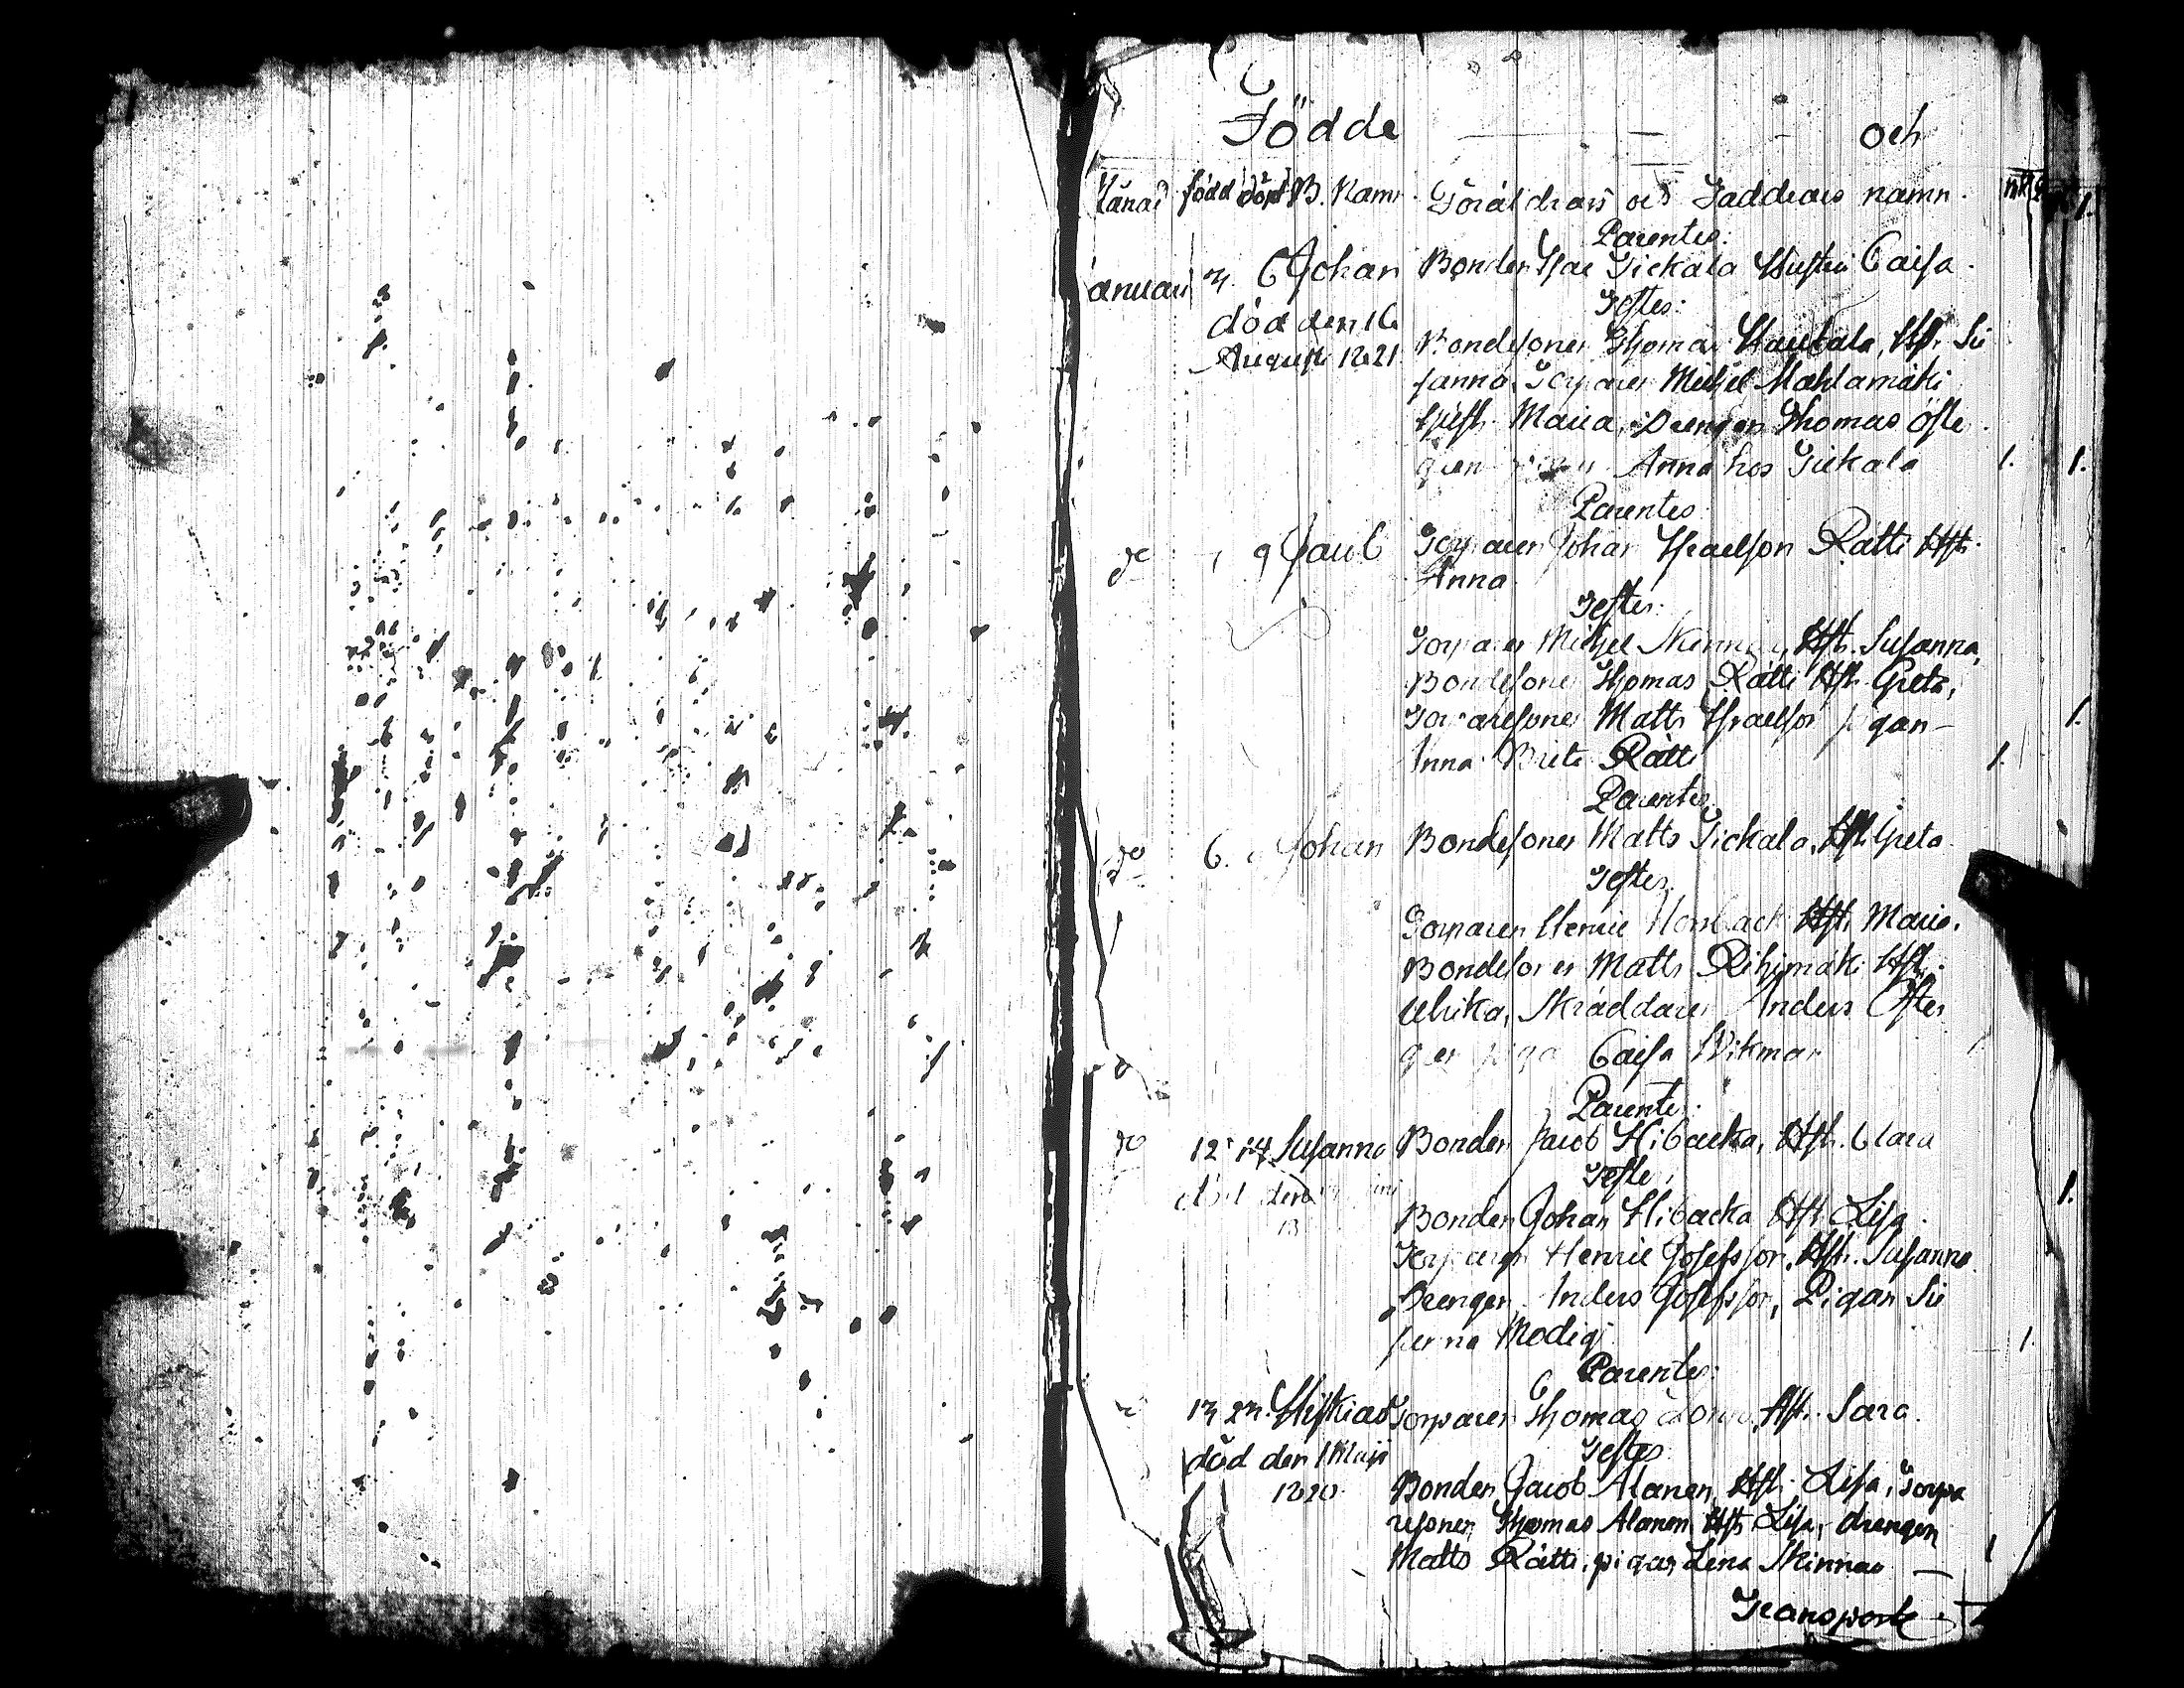 Födde och
Månad född döpt B. Namn Föräldrars och Faddrars namn.
Parentes:
Januari 3. 6 Johan Bonden Isac Tickala Hustru Caisa.
Testes:
död den 16 Bondesonen Thomas Hst. Su
August 1821 sanna, Torparen Michel Mahlamäki
Hust. Maria, Drengen Thomas Öste
gren pigan Anna hos Tickala 1. 1.
Parentes
do 9 Jacob Torparen Johan Israelson Rätti Hst.
Anna
Testes:
Torparen Michel Skinnar, Hst. Susanna,
Bondesonen Thomas Rätti Hst. Greta,
Torparesonen Matts Israelson pigan 1.
Anna Brita Rätti 1.
Parentes
do 6. Johan Bondesonen Matts Tickala, Hst. Greta
Testes
Torparen Henric Hst. Maria.
Bondesonen Matts Rihimäki Hst.
Ulrika, Skräddaren Anders Öster
gren piga Caisa Wikman
Parentes:
do 12 14 Susanna Bonden Jacob Hibacka, Hst. Clara
Testes
död den
13 Bonden Johan Hibacka Hst. Lisa. 1.
Torparen Henric Josefsson, Hst. Susanna
Drengen Anders Josefsson, Pigan Su
sanna Modig 1.
Parentes:
13 23. Hiskias Torparen Thomas Hst. Sara.
död den 1 Maji Testes
1820 Bonden Jacob Alanen, Hst. Lisa, Torpa
resonen Thomas Alanen Hst. Lisa, drengen
Matts Rätti, pigan Lena Skinnar
Transport